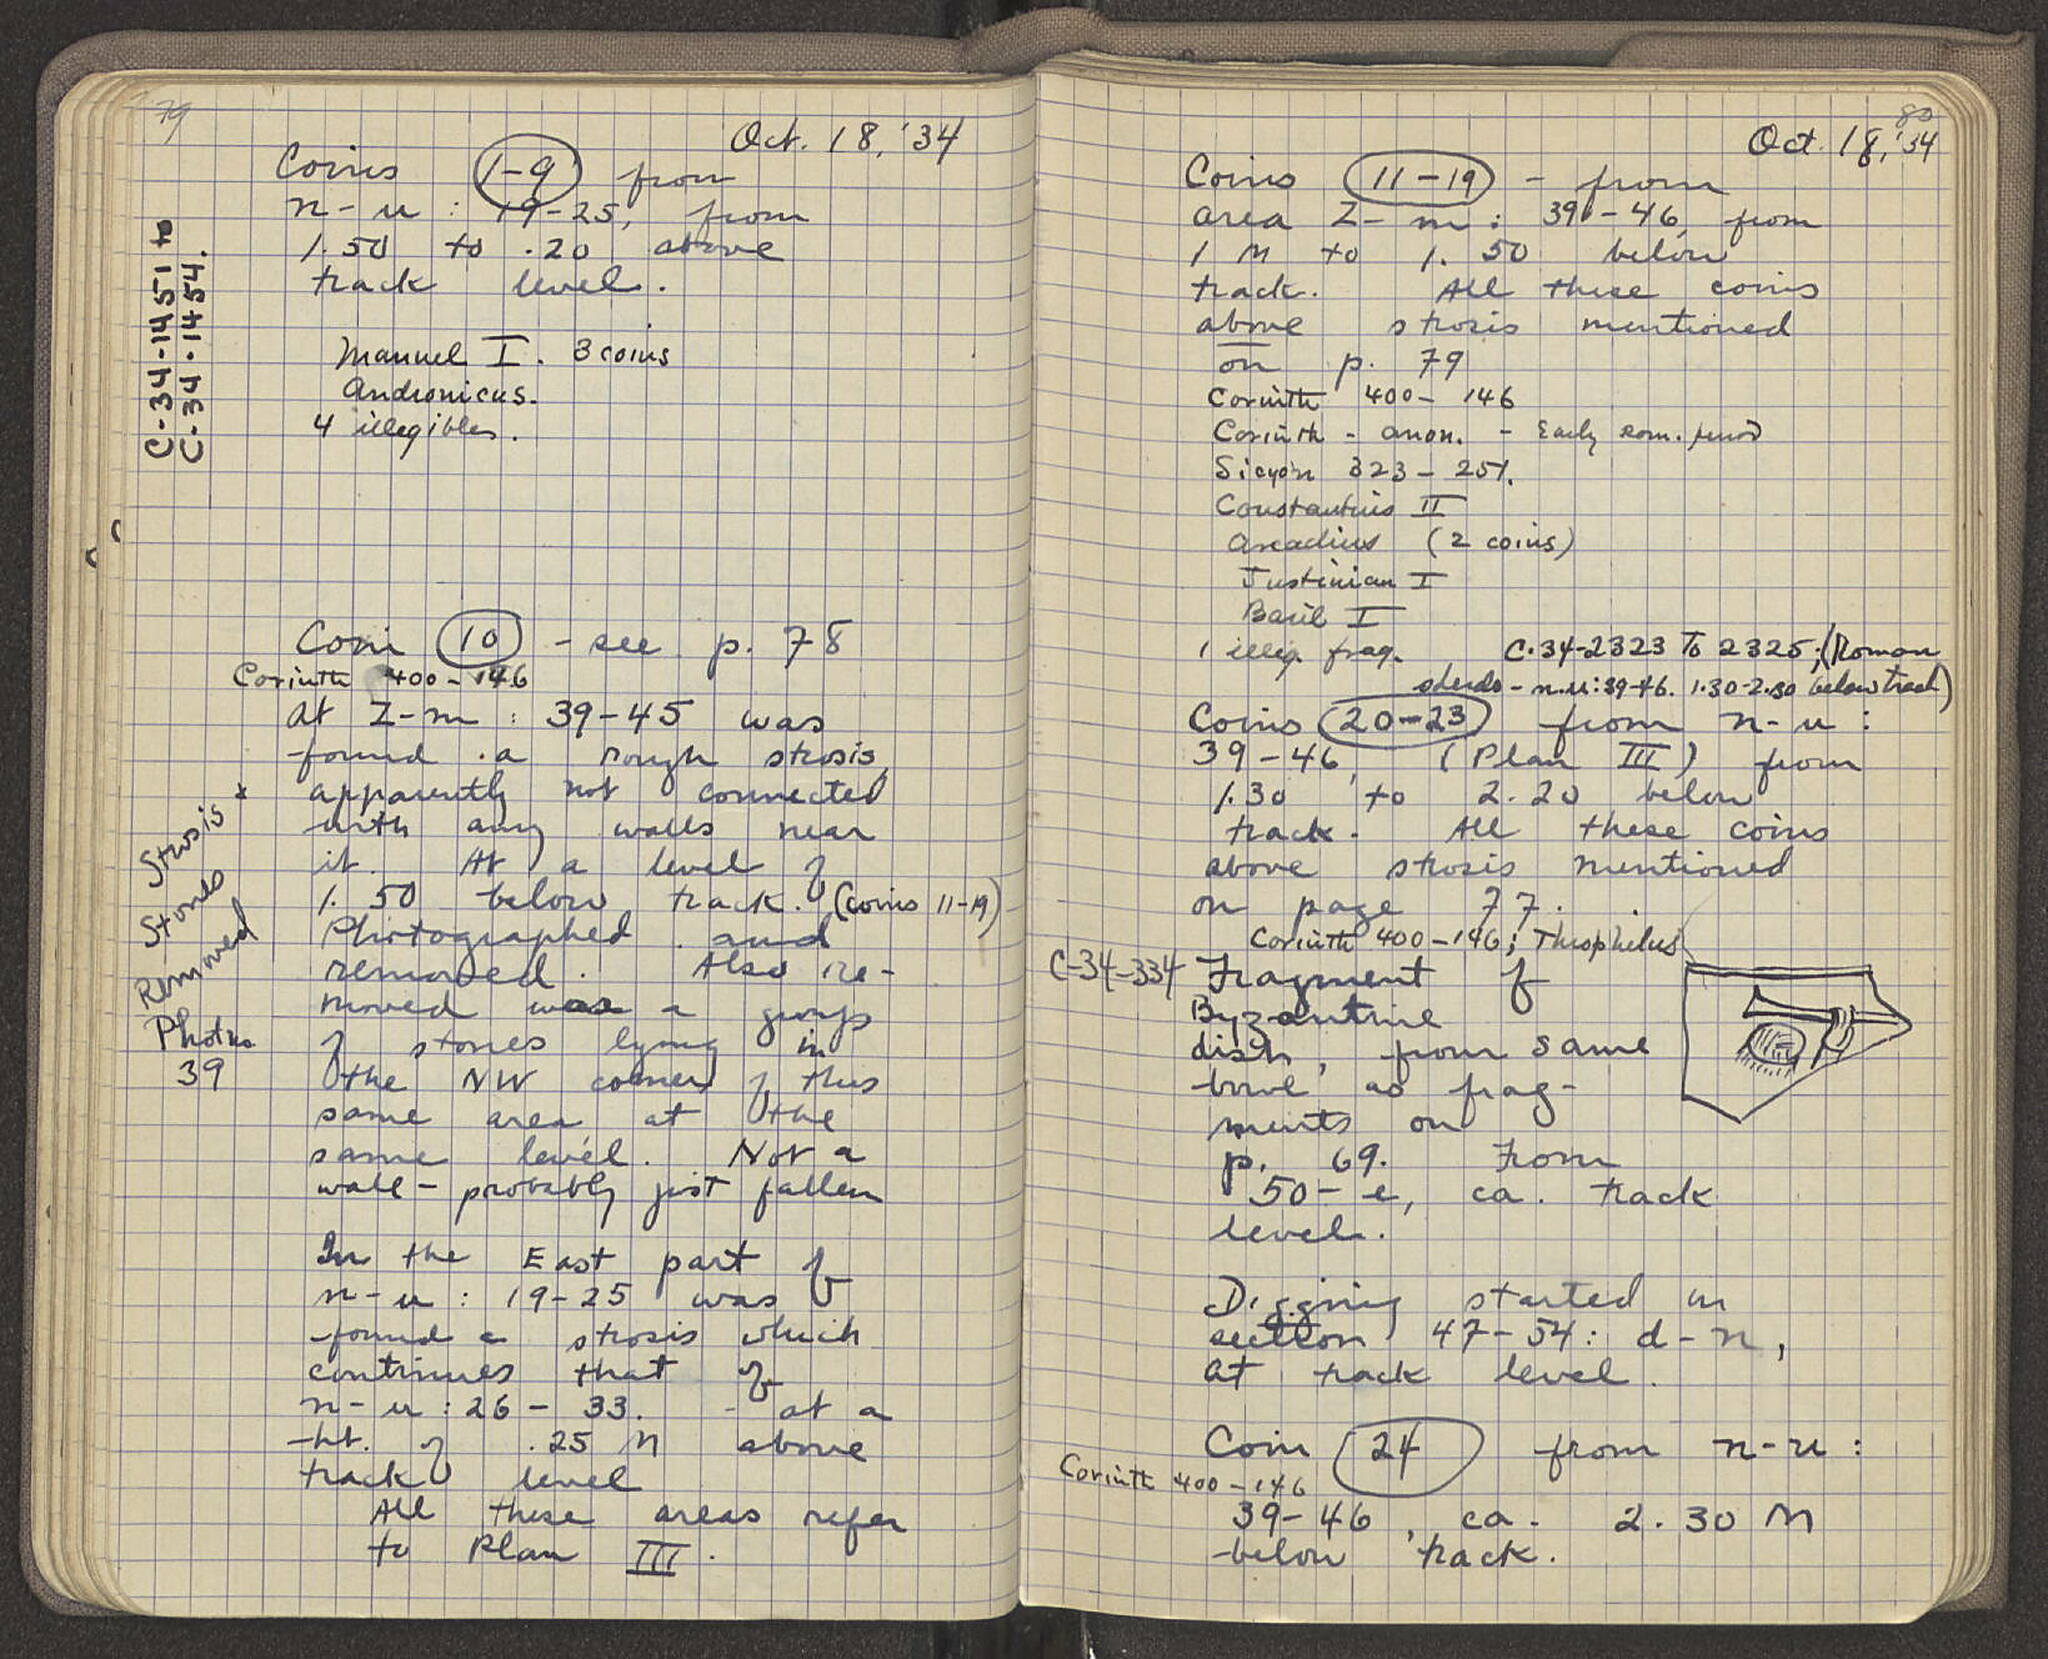 79
Oct. 18, '34
Coins 1-9 from
n-u : 19-25, from
1.50 to .20 above
track level.
C-34-1451 to
C-34-1454.
Manuel I. 3 coins
Andronicus.
4 illegibles.
Coin 10 - see p. 78
Corinth 400-146
At Z-m : 39-45 was
found a rough strosis,
apparently not connected
with any walls near
it. At a level of
1.50 below track. (Coins 11-19)
Photographed and
removed. Also re-
moved was a group
of stones lying in
the NW corner of this
same area at the
same level. Not a
wall - probably just fallen
Strosis +
Stones
Removed
Photos
39
In the East part of
n-u : 19-25 was
found a strosis which
continues that of
n-u : 26-33. - at a
ht. of .25 M above
track level
All these areas refer
to Plan III.
80
Oct. 18, '34
Coins 11-19 - from
area Z-m : 39-46, from
1 M to 1.50 below
track. All these coins
above strosis mentioned
on p. 79
Corinth 400-146
Corinth - anon. - Early Rom. period
Sicyon 323-251.
Constantius II
Arcadius (2 coins)
Justinian I
Basil I
1 illeg. frag.
C-34-2323 To 2325; (Roman
sherds - n-u: 39-46. 1.30-2.30 below track)
Coins 20-23 from n-u :
39-46, (Plan III) from
1.30 to 2.20 below
track. All these coins
above strosis mentioned
on page 77.
Corinth 400-146; Theophilus
C-34-334 Fragment of
Byzantine
dish, from same
bowl as frag-
ments on
p. 69. From
50-e, ca. track
level.
Digging started in
section 47-54: d-n,
at track level.
Coin 24 from n-u :
Corinth 400-146
39-46, ca. 2.30 M
below track.